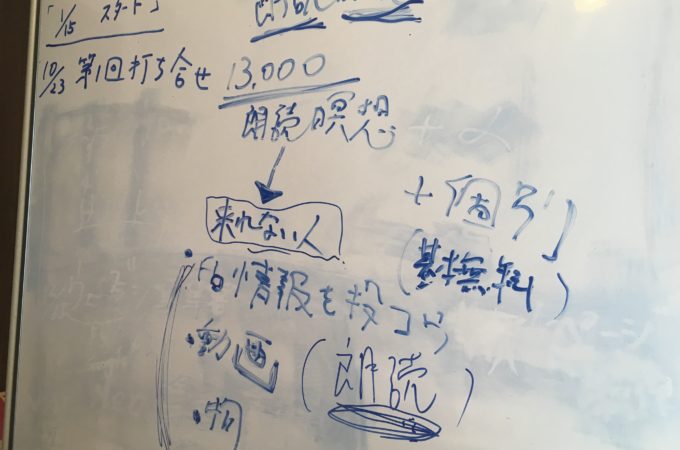 「1/15 スタート」
朗読
10/23 第1回打ち合せ 13,000
朗読瞑想
+α
来れない人
+個別
(基本無料)
・Fb情報を投コウ
・動画 (朗読)
・物
ページ